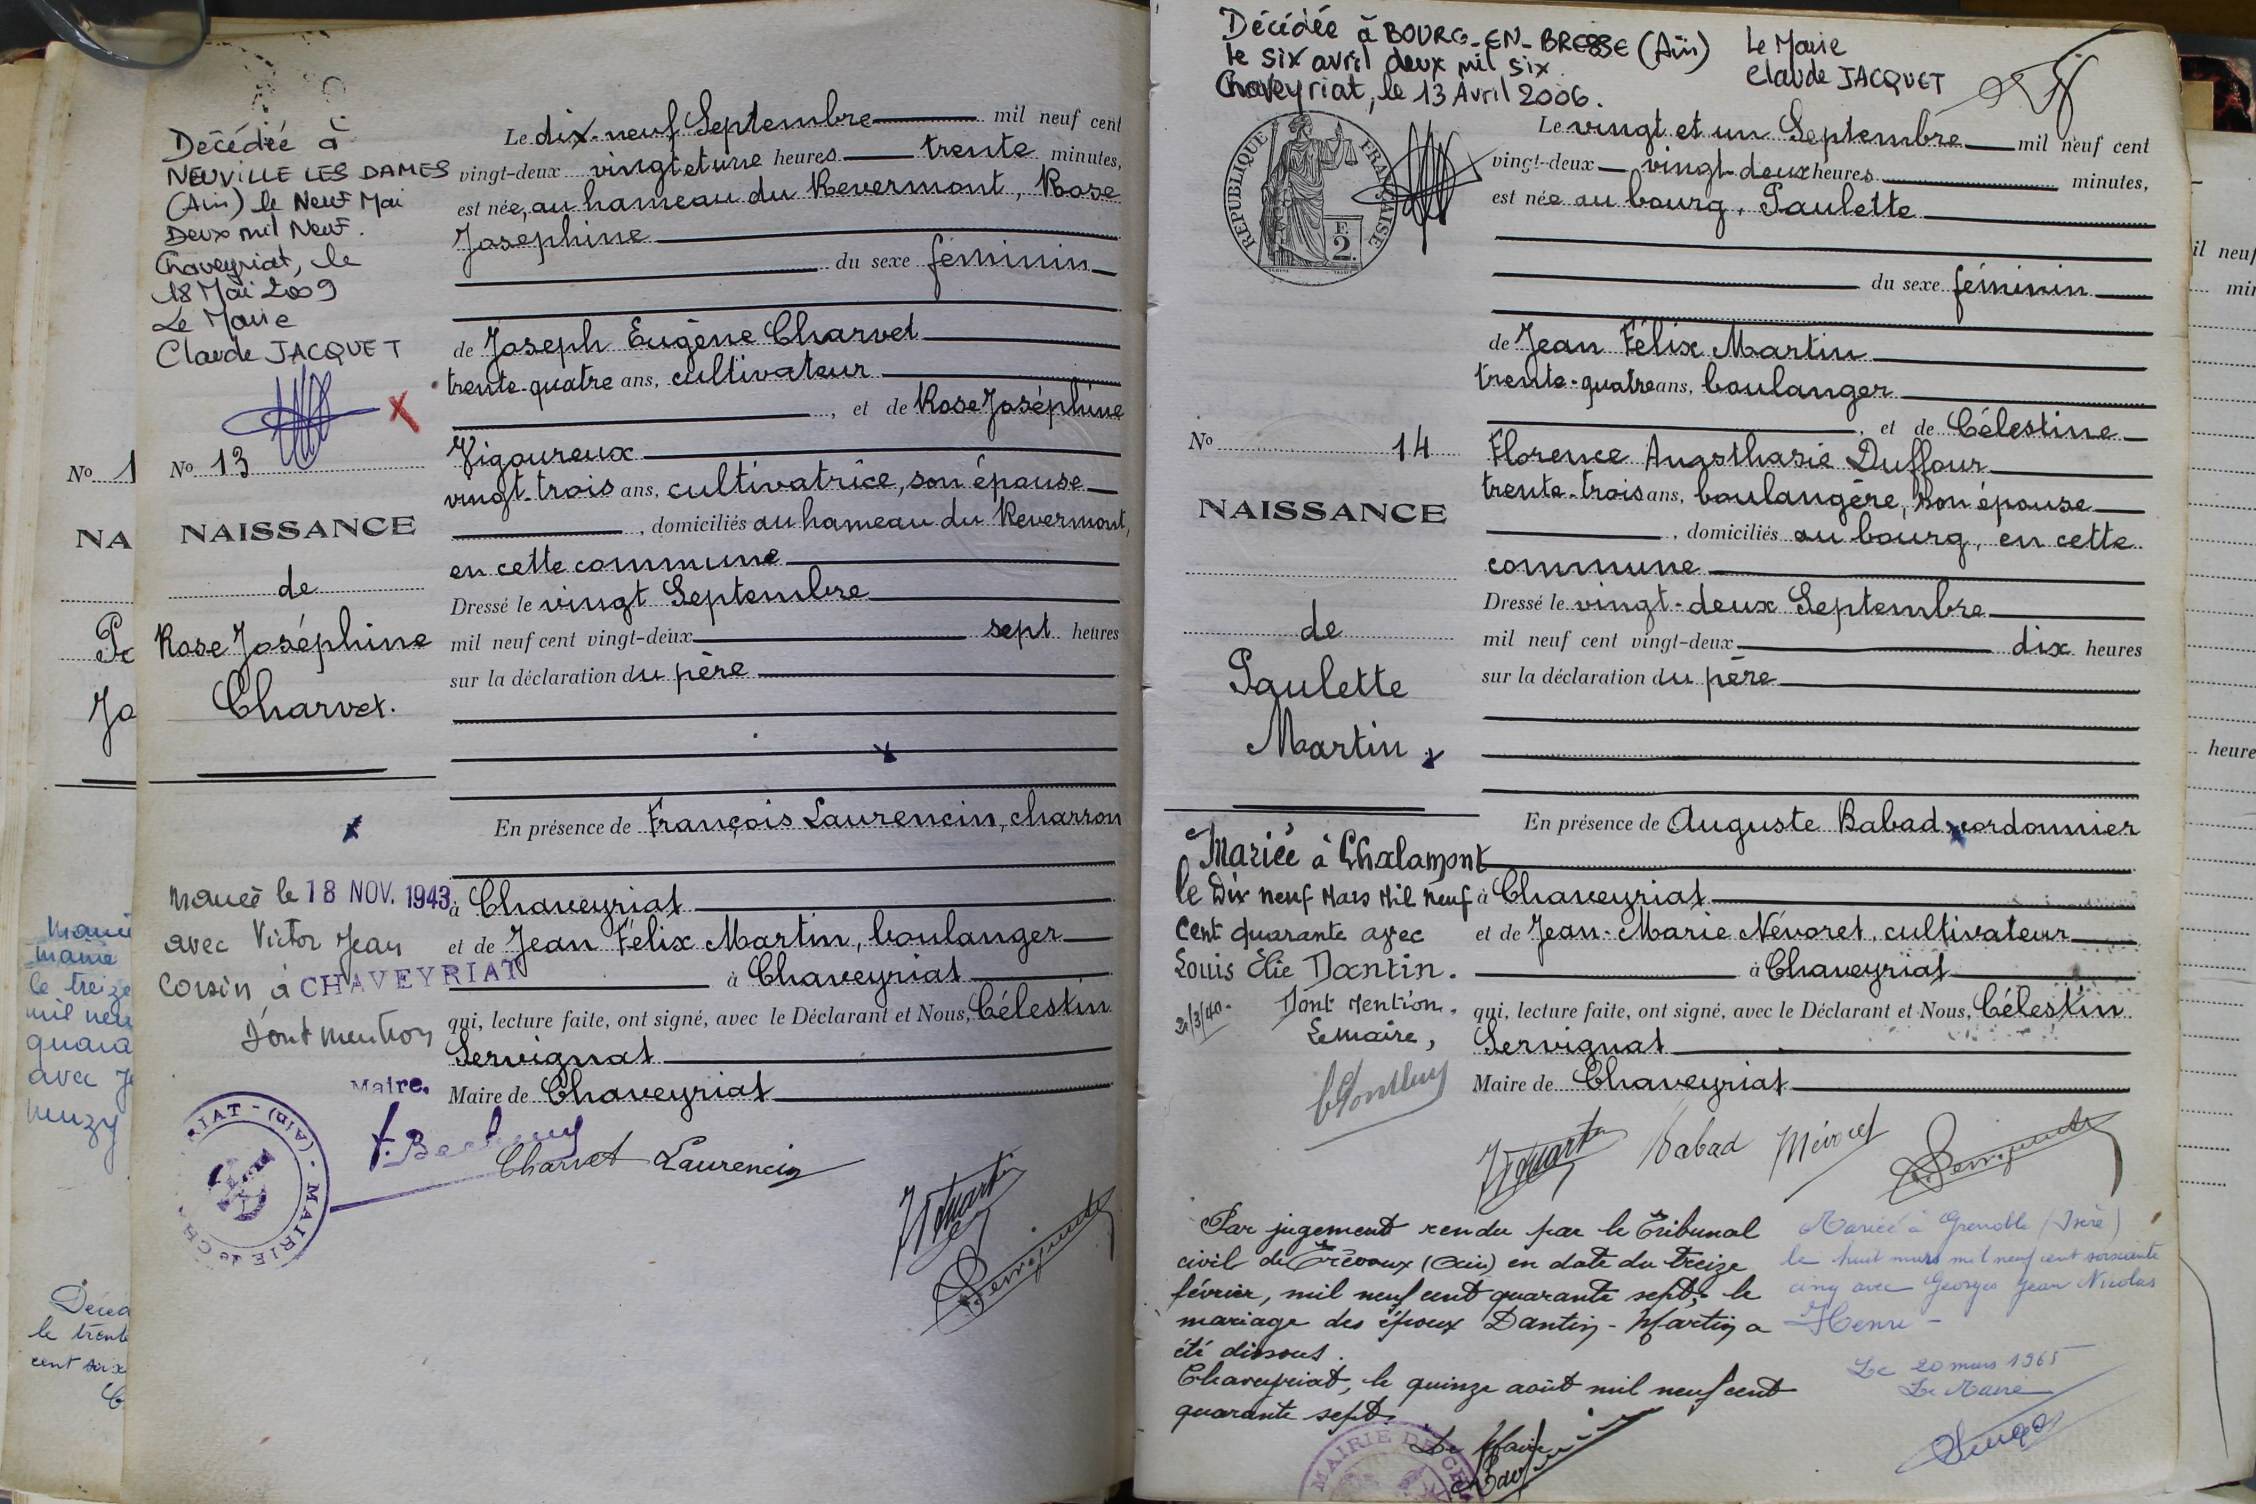 Décédée à
NEUVILLE LES DAMES
(Ain) le Neuf Mai
Deux mil Neuf.
Chaveyriat, le
18 Mai 2009
Le Maire
Claude JACQUET
No 13
NAISSANCE
de
Rose Joséphine
Charvet.
Le dix-neuf Septembre mil neuf cent
vingt-deux vingt et une heures trente minutes,
est née, au hameau du Revermont, Rose
Joséphine
du sexe féminin
de Joseph Eugène Charvet
trente-quatre ans, cultivateur
, et de Rose Joséphine
Vigoureux
vingt-trois ans, cultivatrice, son épouse
, domiciliés au hameau du Revermont,
en cette commune
Dressé le vingt Septembre
mil neuf cent vingt-deux sept heures
sur la déclaration du père
En présence de François Laurencin, charron
à Chaveyriat
et de Jean Félix Martin, boulanger
à Chaveyriat
qui, lecture faite, ont signé, avec le Déclarant et Nous, Célestin
Servignat
Maire de Chaveyriat
Charvet Laurencin
Mariée le 18 NOV. 1943
avec Victor Jean
Corsin à CHAVEYRIAT
Dont mention
Maire.
MAIRIE de
(AIN)
No 1
NA
le treize
mil neu
quara
avec
le trente
Décédée à BOURG-EN-BRESSE (Ain)
le six avril deux mil six.
Chaveyriat, le 13 Avril 2006.
Le Maire
Claude JACQUET
RÉPUBLIQUE FRANÇAISE
F.
2.
No 14
NAISSANCE
de
Paulette
Martin
Le vingt et un Septembre mil neuf cent
vingt-deux vingt-deux heures minutes,
est née au bourg, Paulette
du sexe féminin
de Jean Félix Martin
trente-quatre ans, boulanger
, et de Célestine
Florence Angsthasie Duffour
trente-trois ans, boulangère, son épouse
, domiciliés au bourg, en cette
commune
Dressé le vingt-deux Septembre
mil neuf cent vingt-deux dix heures
sur la déclaration du père
En présence de Auguste Babad, cordonnier
à Chaveyriat
et de Jean-Marie Névoret, cultivateur
à Chaveyriat
qui, lecture faite, ont signé, avec le Déclarant et Nous, Célestin
Servignat
Maire de Chaveyriat
Babad Névoret
Mariée à Chalamont
le Dix neuf Mars Mil neuf
Cent quarante avec
Louis Élie Dantin.
Dont Mention.
Le maire,
Par jugement rendu par le Tribunal
civil de Trévoux (Ain) en date du treize
février, mil neuf cent quarante sept, le
mariage des époux Dantin - Martin a
été dissous.
Chaveyriat, le quinze août mil neuf cent
quarante sept.
Le Maire
MAIRIE DE CH
Mariée à Grenoble (Isère)
le huit mars mil neuf cent soixante
cinq avec Georges Jean Nicolas
Henri -
Le 20 mars 1965
Le Maire
il neuf
heure